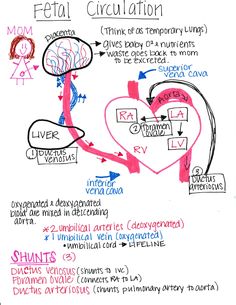 Fetal Circulation
MOM
Placenta
(Think of as temporary lungs)
→ gives baby O² + nutrients
→ waste goes back to mom
to be excreted.
superior
vena cava
Aorta
RA
LA
② foramen
ovale
LIVER
① Ductus
venosus
RV
LV
③
Ductus
arteriosus
inferior
vena cava
oxygenated & deoxygenated
blood are mixed in descending
aorta.
* 2 umbilical arteries (deoxygenated)
* 1 umbilical vein (oxygenated)
• umbilical cord → LIFELINE
SHUNTS (3)
Ductus venosus (shunts to IVC)
Foramen ovale (connects RA to LA)
Ductus arteriosus (shunts pulmonary artery to aorta)